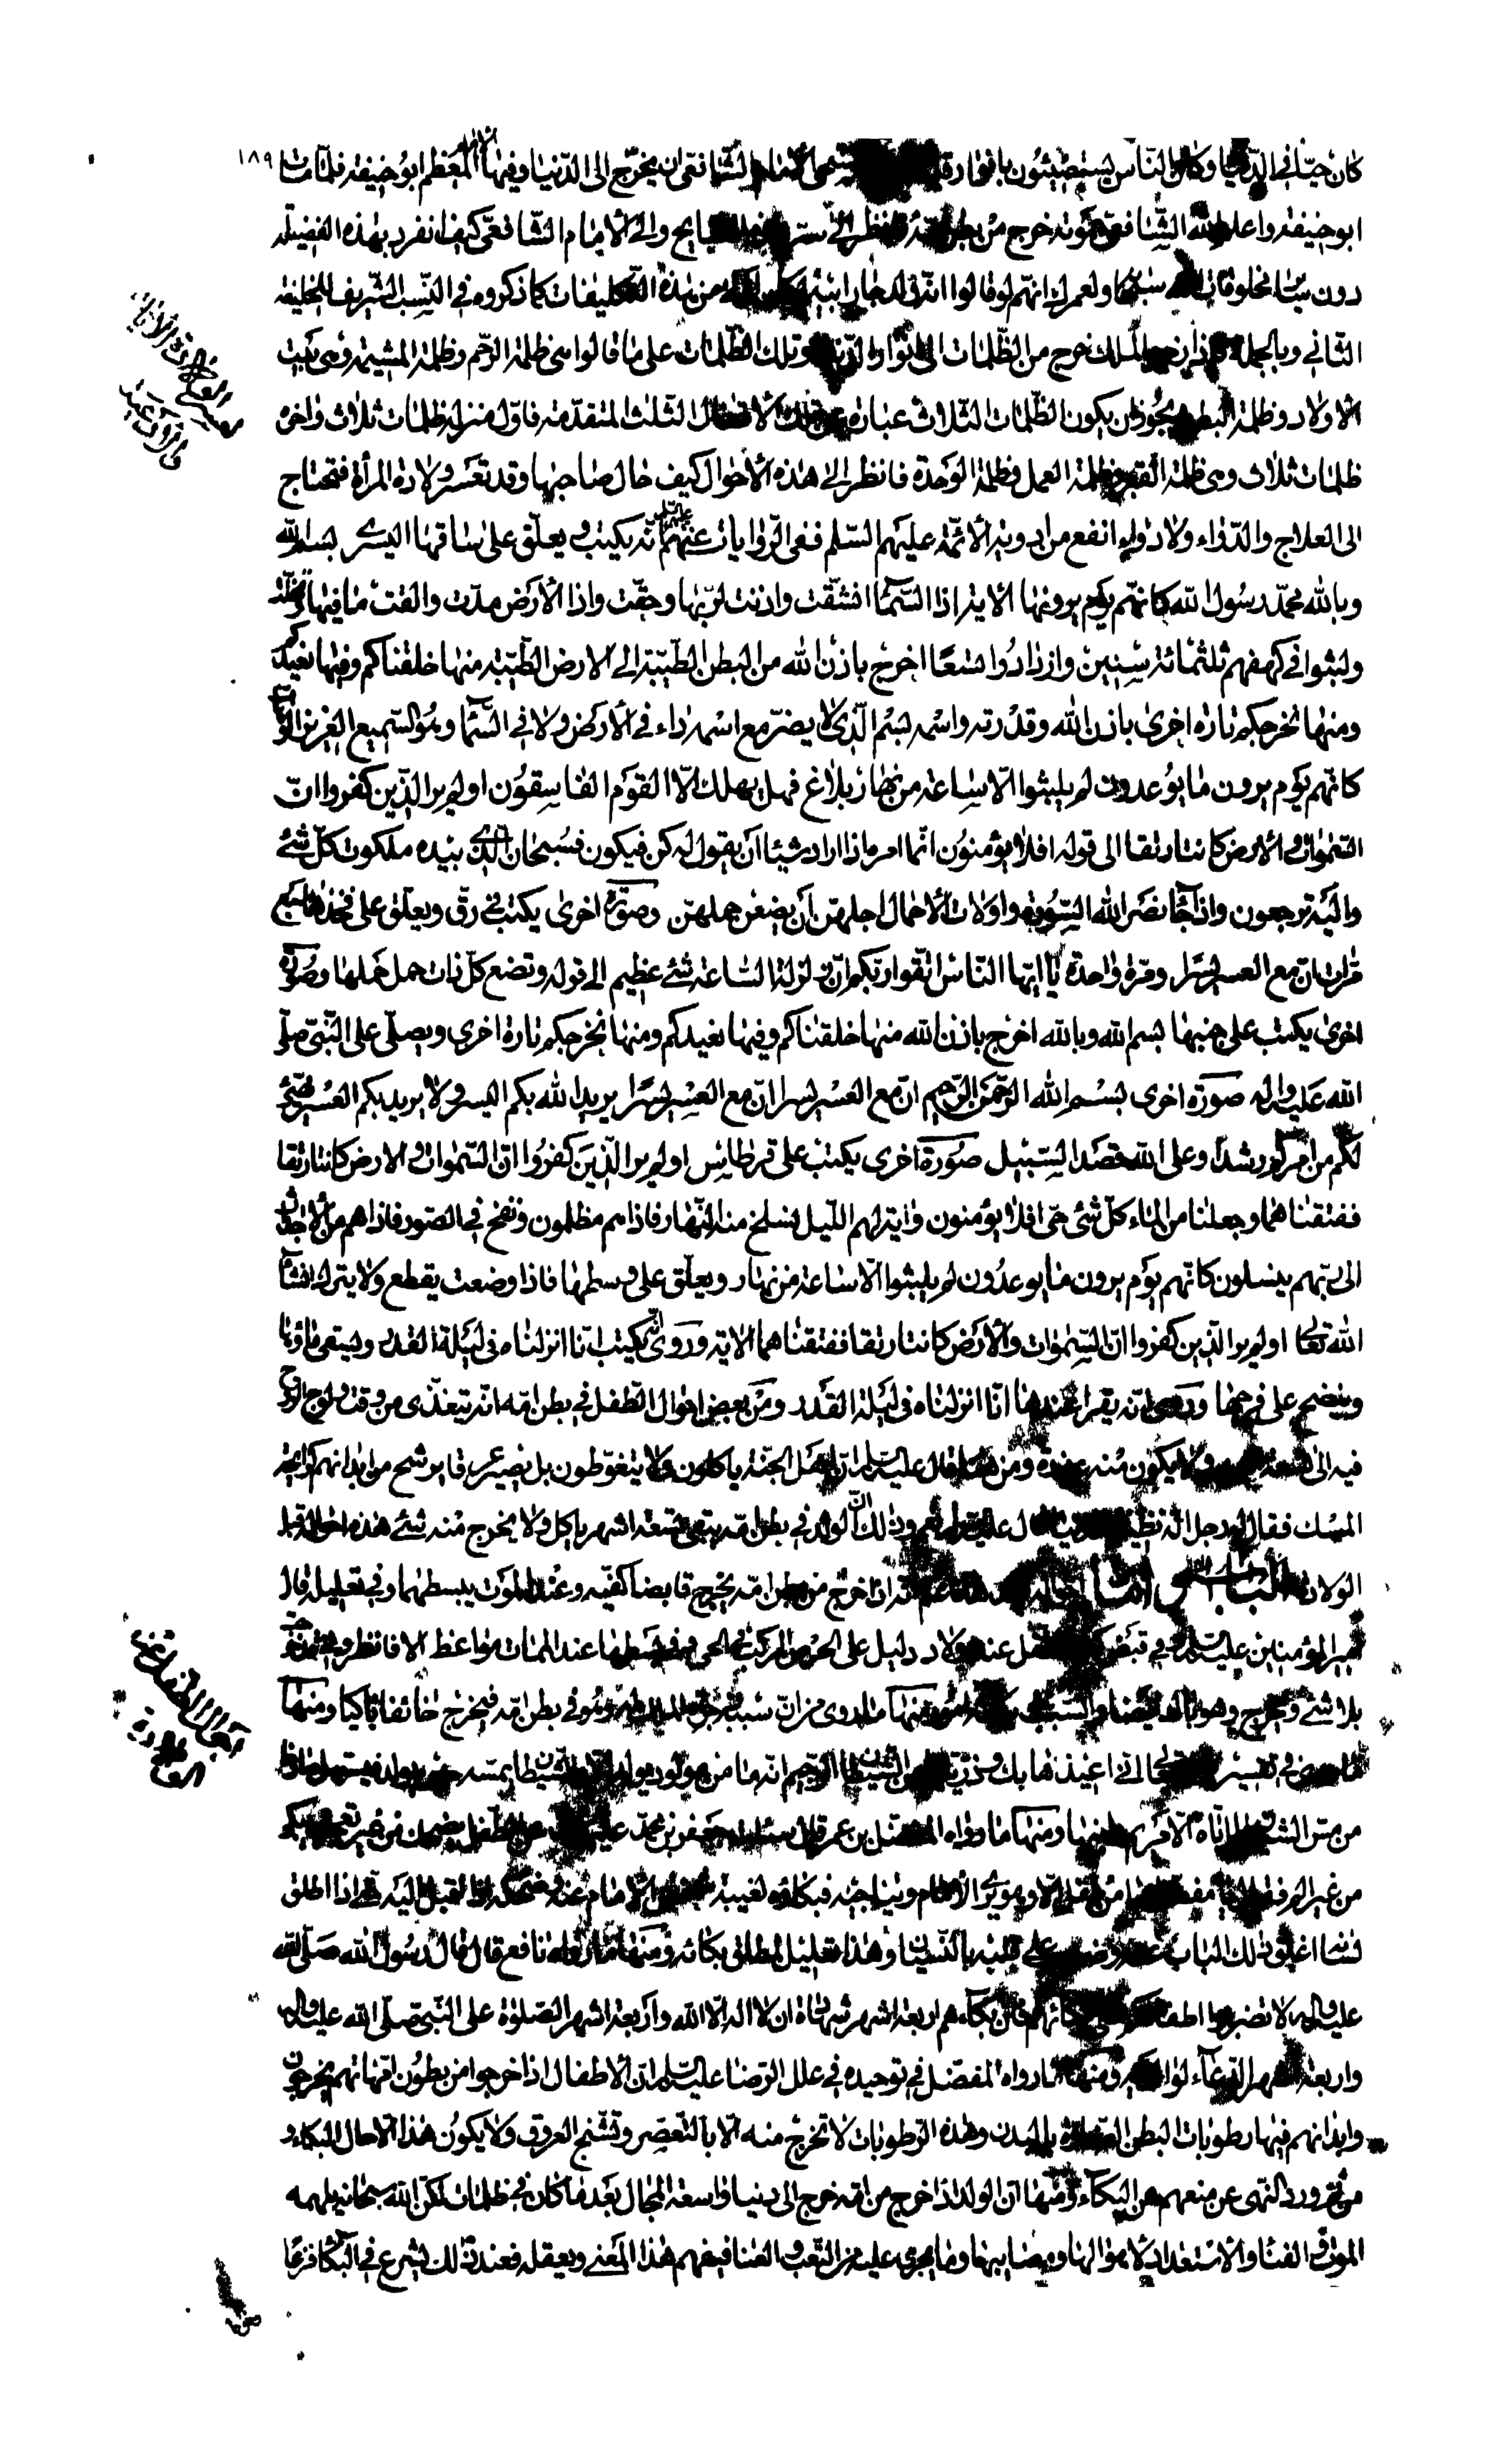 ١٨٩
كان حيّا في الدنيا وكان الناس يستضيئون بانوار استحى الامام الشافعي ان يخرج الى الدنيا وفيها الامام المعظم ابو حنيفة فلمّا مات
ابو حنيفة واعلم الله الشافعي بموته خرج من بطن امّه فانظر الى ستر القبايح والى الامام الشافعي كيف انفرد بهذه الفضيلة
دون سائر مخلوقات الله سبحانه ولعمرك انهم لو قالوا انه من هذه التكليفات كما ذكروه في النسب الشريف للخليفة
الثاني وبالجملة خرج من الظلمات الى انوار الدنيا وتلك الظلمات على ما قالوا هي ظلمة الرحم وظلمة المشيمة وهي بيت
الاولاد وظلمة البطن ويجوز ان يكون الظلمات الثلاث عبارة عن تلك الاحوال الثلث المتقدمة فاوّل منزله ظلمات ثلاث واخره
ظلمات ثلاث وهي ظلمة القبر وظلمة العمل وظلمة الوحدة فانظر الى هذه الاحوال كيف حال صاحبها وقد تعسر ولادة المرأة فتحتاج
الى العلاج والدواء ولا دواء انفع من ادوية الائمة عليهم السلم ففي الروايات عنهم عليهم السلم انه يكتب ويعلق على ساقها اليسرى بسم الله
وبالله محمد رسول الله كانهم يوم يرونها الاية اذا السماء انشقت واذنت لربها وحقت واذا الارض مدت والقت ما فيها وتخلت
ولبثوا في كهفهم ثلثمائة سنين وازدادوا تسعًا اخرج باذن الله من البطن الطيبة الى الارض الطيبة منها خلقناكم وفيها نعيدكم
ومنها نخرجكم تارة اخرى باذن الله وقدرته واسمه بسم الذي لا يضر مع اسمه داء في الارض ولا في السماء وهو السميع العزيز الوهاب
كانهم يوم يرون ما يوعدون لم يلبثوا الا ساعة من نهار بلاغ فهل يهلك الا القوم الفاسقون اولم ير الذين كفروا ان
السموات والارض كانتا رتقا الى قوله افلا يؤمنون انما امره اذا اراد شيئا ان يقول له كن فيكون فسبحان الذي بيده ملكوت كل شئ
واليه ترجعون واذا جاء نصر الله السورة واولات الاحمال اجلهن ان يضعن حملهن وصورة اخرى يكتب في رق ويعلق على فخذها سبع
مرات ان مع العسر يسرا ومرة واحدة يا ايها الناس اتقوا ربكم ان زلزلة الساعة شئ عظيم الى قوله وتضع كل ذات حمل حملها وصورة
اخرى يكتب على جنبها بسم الله وبالله اخرج باذن الله منها خلقناكم وفيها نعيدكم ومنها نخرجكم تارة اخرى ويصلي على النبي صلى
الله عليه واله صورة اخرى بسم الله الرحمن الرحيم ان مع العسر يسرا ان مع العسر يسرا يريد الله بكم اليسر ولا يريد بكم العسر ويهيئ
لكم من امركم رشدا وعلى الله قصد السبيل صورة اخرى يكتب على قرطاس اولم ير الذين كفروا ان السموات والارض كانتا رتقا
ففتقناهما وجعلنا من الماء كل شئ حي افلا يؤمنون واية لهم الليل نسلخ منه النهار فاذا هم مظلمون ونفخ في الصور فاذا هم من الاجداث
الى ربهم ينسلون كانهم يوم يرون ما يوعدون لم يلبثوا الا ساعة من نهار ويعلق على وسطها فاذا وضعت يقطع ولا يترك انشاء
الله تعالى اولم ير الذين كفروا ان السموات والارض كانتا رتقا ففتقناهما الاية وروى انه يكتب انا انزلناه في ليلة القدر وتسقى ماؤها
وينضح على فرجها وروى انه يقرا عندها انا انزلناه في ليلة القدر ومن بعض احوال الطفل في بطن امه انه يتغذى من وقت ولوج الروح
فيه الى تسعة ولا يكون منه عذرة ومن هذا قال عليه السلم ان اهل الجنة ياكلون ولا يتغوطون بل يصير عرقا يرشح من ابدانهم كرائحة
المسك فقال له رجل اله نظير في الدنيا قال عليه السلم نعم وذلك ان الولد في بطن امه يبقى تسعة اشهر ياكل ولا يخرج منه شئ هذه احواله قبل
الولادة اذا خرج من بطن امه يخرج قابضا كفيه وعند الموت يبسطهما وفي تعليله قال
امير المؤمنين عليه السلم وفي قبض كف الطفل عند ولاد دليل على الحرص المركب في الحي وفي بسطها عند الممات مواعظ الا فانظروني قد خرجت
بلا شئ ويخرج وهو باك ايضا والسبب في بكائه امور منها ما روى من ان سبب وهو في بطن امه فيخرج خائفا باكيا ومنها
ما روى في تفسير قوله تعالى اني اعيذها بك وذريتها من الشيطان الرجيم انه ما من مولود يولد الا والشيطان يمسه حين يولد فيستهل صارخا
من مس الشيطان اياه الا مريم وابنها ومنها ما رواه المفضل بن عمر قال سئلت جعفر بن محمد عليه السلم عن الطفل يضحك من غير تعجب ويبكي
من غير الم فقال يا مفضل ما من طفل الا وهو يرى الامام ويناجيه فبكاؤه لغيبة الامام عنه وضحكه اذا اقبل اليه حتى اذا اطلق
لسانه اغلق ذلك الباب عنه وضرب على قلبه بالنسيان وهذا تعليل لمطلق بكائه ومنها ما رواه نافع قال قال رسول الله صلى الله
عليه واله لا تضربوا اطفالكم على بكائهم فان بكاءهم اربعة اشهر شهادة ان لا اله الا الله واربعة اشهر الصلوة على النبي صلى الله عليه واله
واربعة اشهر الدعاء لوالديه ومنها ما رواه المفضل في توحيده في علل الرضا عليه السلم ان الاطفال اذا خرجوا من بطون امهاتهم يخرجون
وابدانهم فيها رطوبات البطن بالبدن وهذه الرطوبات لا تخرج منه الا بالتعصر وتشنج العروق ولا يكون هذا الا حال البكاء و
من ثم ورد النهى عن منعهم عن البكاء ومنها ان الولد اذا خرج من امه خرج الى دنيا واسعة المجال بعد ما كان في ظلمات لكن الله سبحانه يلهمه
الموت والفناء والاستعداد لاهوالها ومصايبها وما يجرى عليه من التعب والعنا فيفهم هذا المعنى ويعقله فعند ذلك يشرع في البكاء فزعا